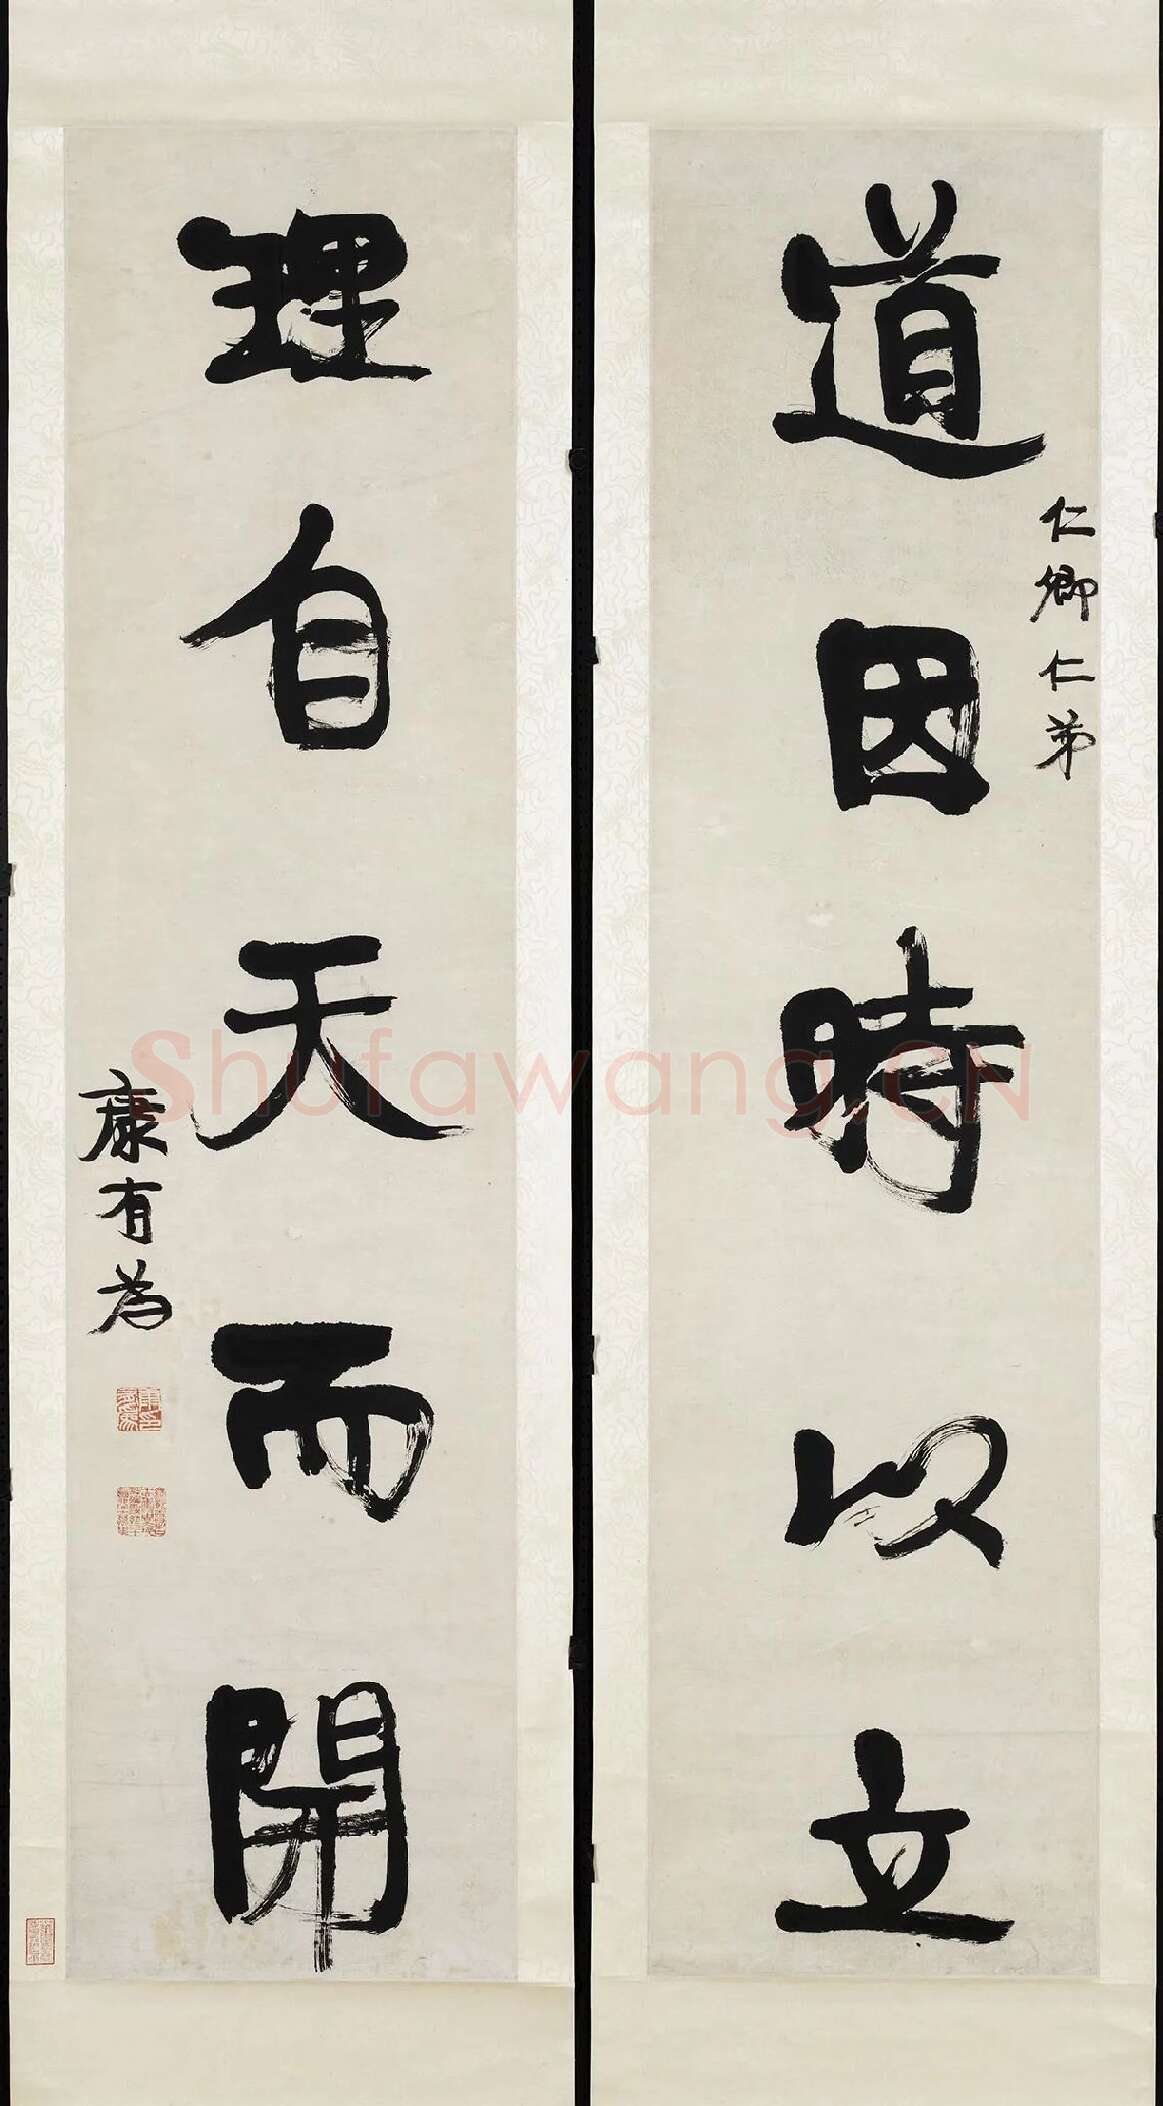 道因時以立
仁卿仁弟
理自天而開
康有為
Shufawang.CN